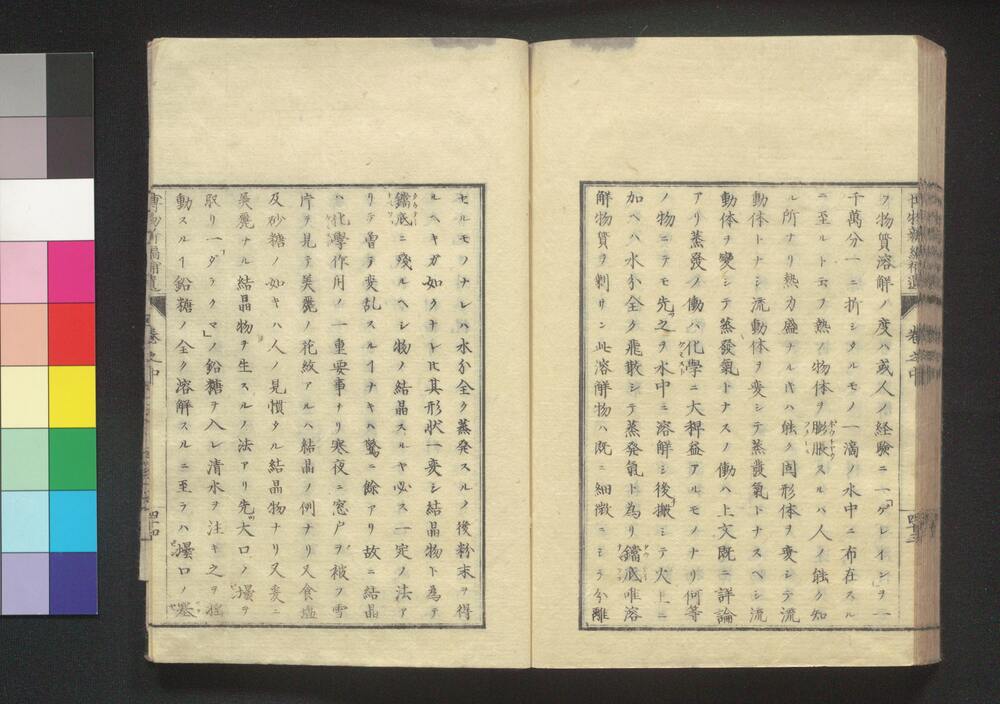 ツ物質溶解ノ度ハ或人ノ経験ニ一「ゲレイン」ヲ一
千萬分一ニ折シタルモノ一滴ノ水中ニ布在スル
ニ至ルト云フ熱ノ物体ヲ膨脹スルハ人ノ能ク知
ル所ナリ熱力盛ナルキハ能ク固形体ヲ変シテ流
動体トナシ流動体ヲ変シテ蒸發氣トナスヘシ流
動体ヲ變シテ蒸發氣トナスノ働ハ上文既ニ詳論
アリ蒸發ノ働ハ化學ニ大稗益アルモノナリ何等
ノ物ニテモ先之ヲ水中ニ溶解シ後搬ミテ火上ニ
加ヘハ水分全ク飛散シテ蒸発氣ト為リ鐺底唯溶
解物質ヲ剰サン此溶解物ハ既ニ細微ニシテ分離
博物新編補遺 巻之中 四十三
セルモノナレハ水分全ク蒸発スルノ後粉末ヲ得
ルヘキガ如クナレ𪜈其形状一変シ結晶物ト為テ
鐺底ニ殘ルヘシ物ノ結晶スルヤ必ス一定ノ法ア
リテ曽テ変乱スルヿナキハ驚ニ餘アリ故ニ結晶
ハ化學作用ノ一重要事ナリ寒夜ニ窓戸ヲ被フ雪
片ヲ見テ美麗ノ花紋アルハ結晶ノ例ナリ又食塩
及砂糖ノ如キハ人ノ見慣タル結晶物ナリ又爰ニ
美麗ナル結晶物ヲ生スルノ法アリ先大口ノ壜ヲ
取リ一「ダラクマ」ノ鉛糖ヲ入レ清水ヲ注キ之ヲ搖
動スルヿ鉛糖ノ全ク溶解スルニ至ラハ壜口ノ塞
博物新編補遺 巻之中 四十四